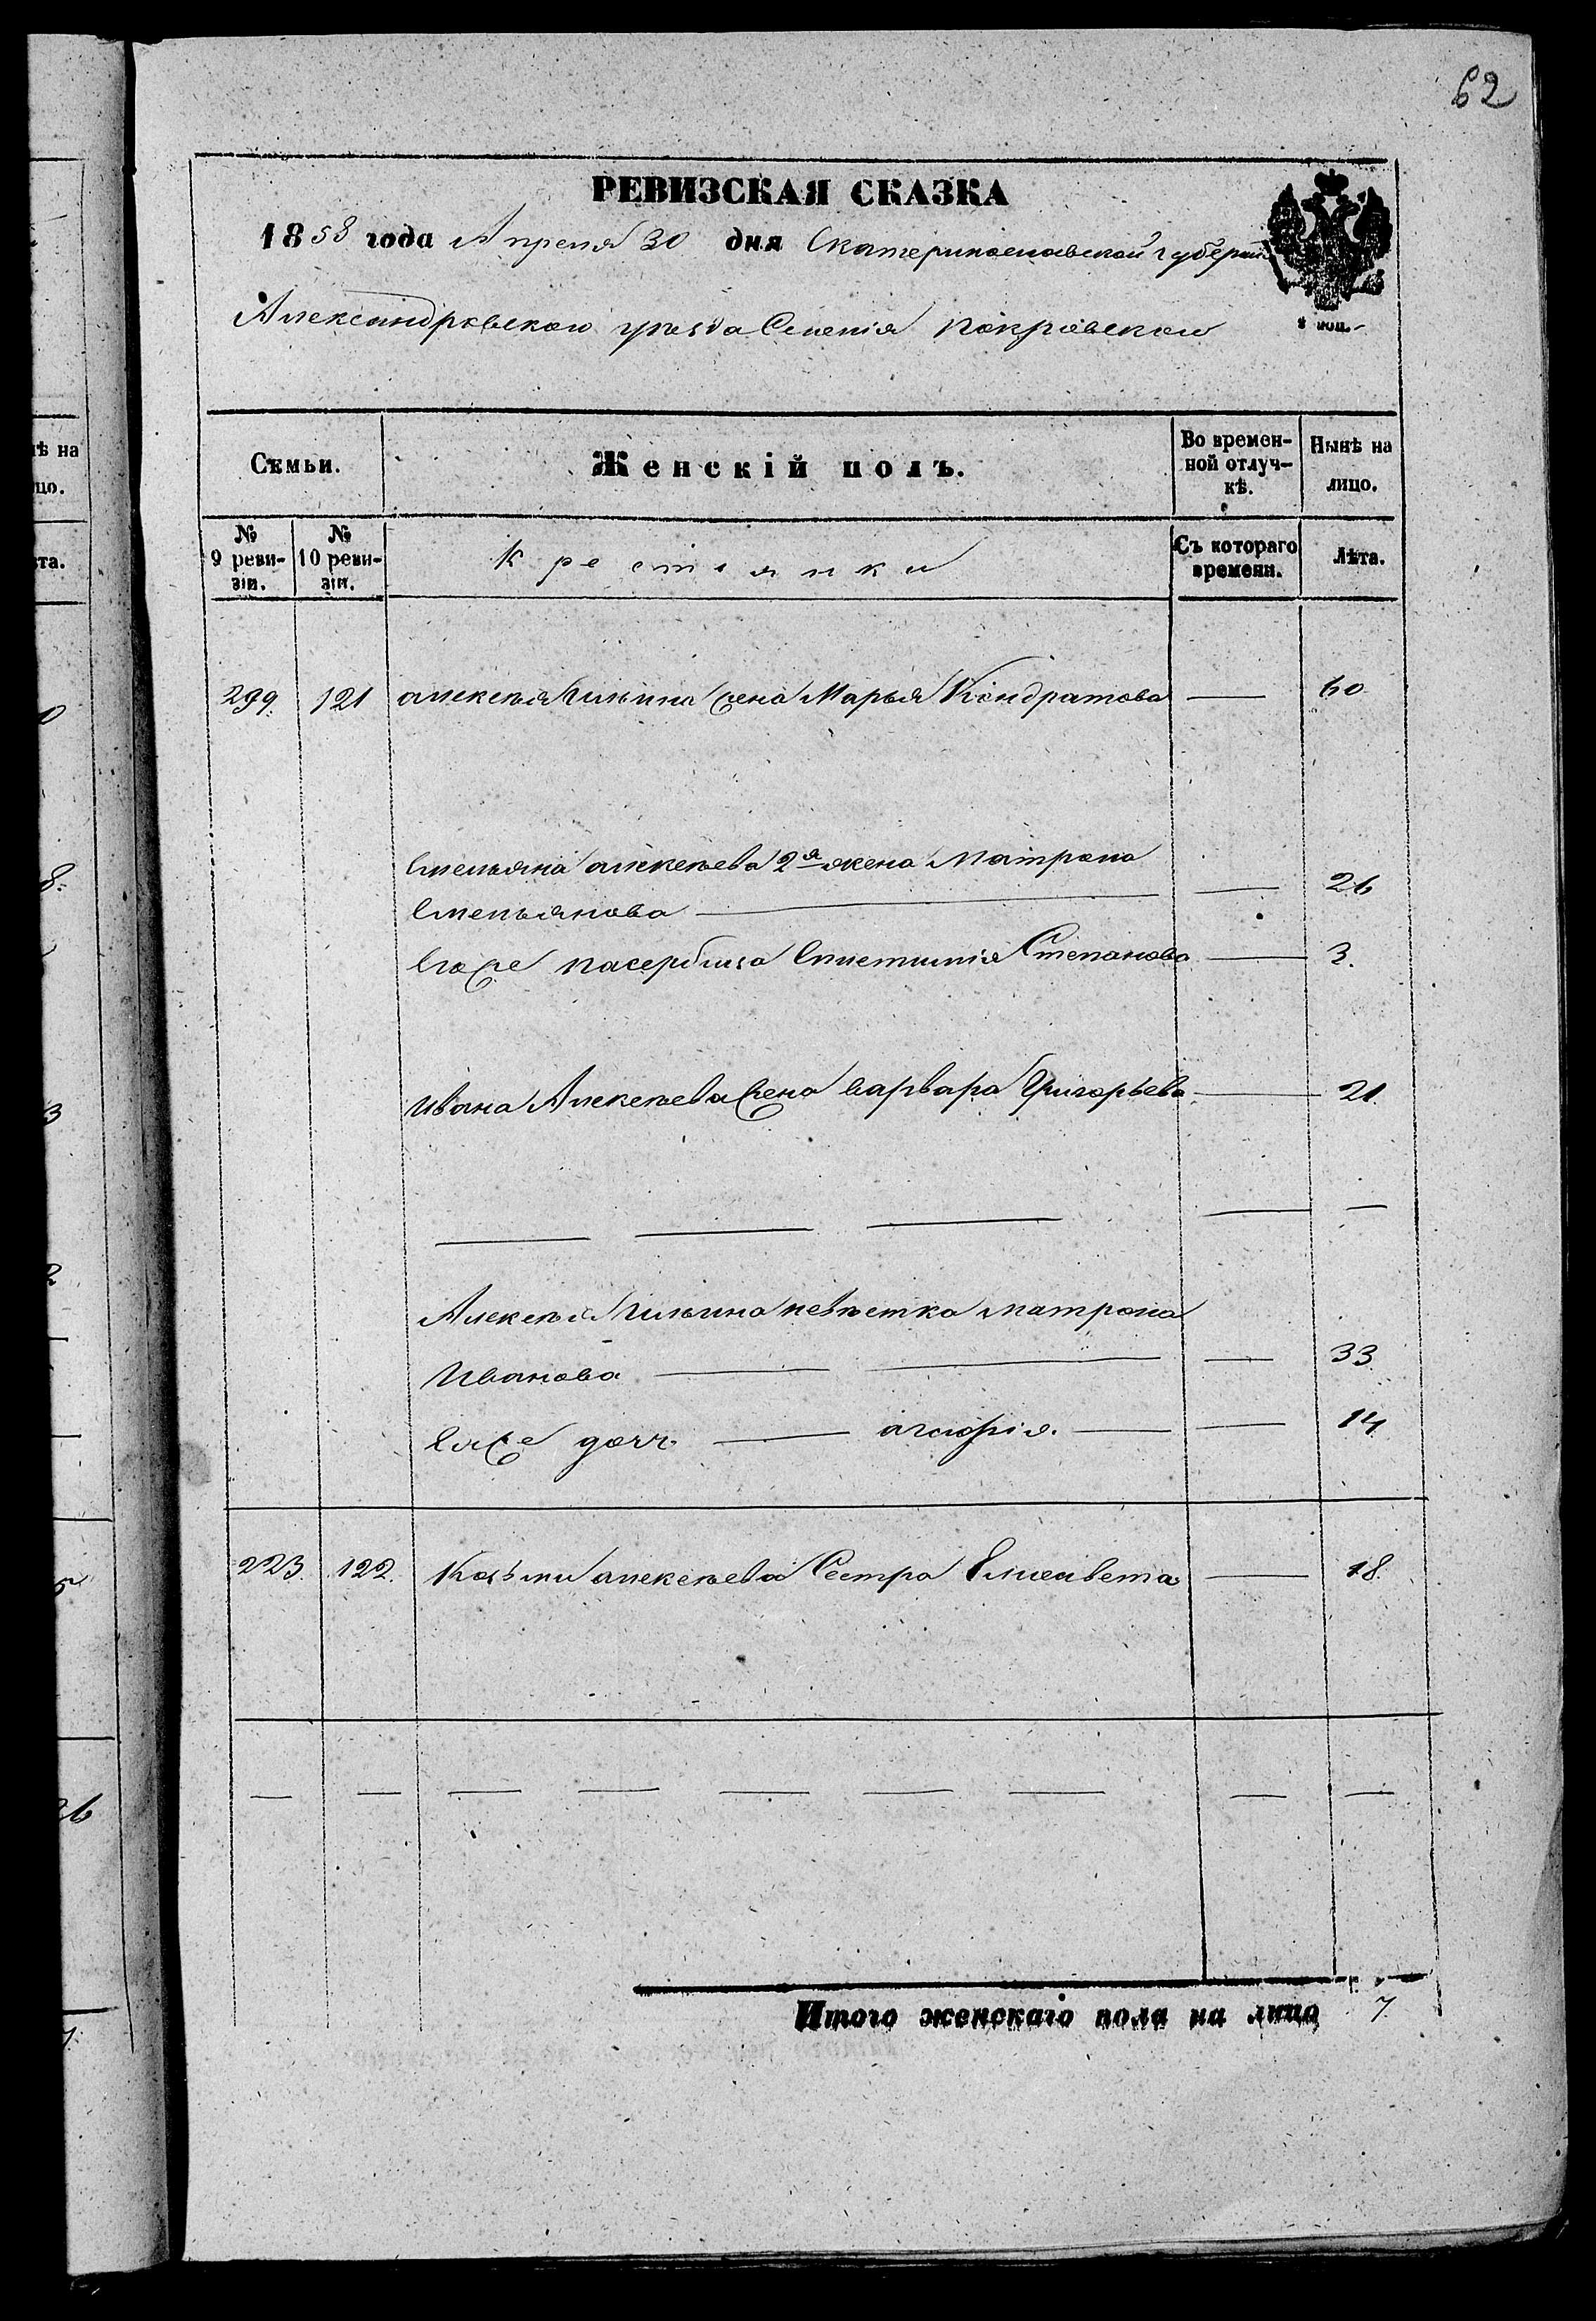 62
РЕВИЗСКАЯ СКАЗКА
1858 года Апреля 30 дня Екатеринославской губерніи
Александровскаго уѣзда Селенія Покровскаго
4 коп.
Семьи. Женскій полъ. Во времен- Нынѣ на
ной отлуч- лицо.
кѣ.
№ № Крестьянки Съ котораго Лѣта.
9 реви- 10 реви- времени.
зіи. зіи.
299. 121 алексѣя Ильина жена Марья Кондратова — 60
Емельяна алексѣева 2я жена Матрона
Емельянова — — 26
Егоже пасербица Епистимія Степанова — 3.
Ивана Алексѣева жена варвара Григорьева — 21.
— — — — —
Алексѣя Ильина невѣстка матрона
Иванова — — — 33
Еяже дочь — агафія. — — 14
223. 122. Козьми алексѣева Сестра Елисавета — 18.
— — — — — — — — —
Итого женскаго пола на лицо 7.
ѣ на
цо.
та.
0
8.
3
2
5
26